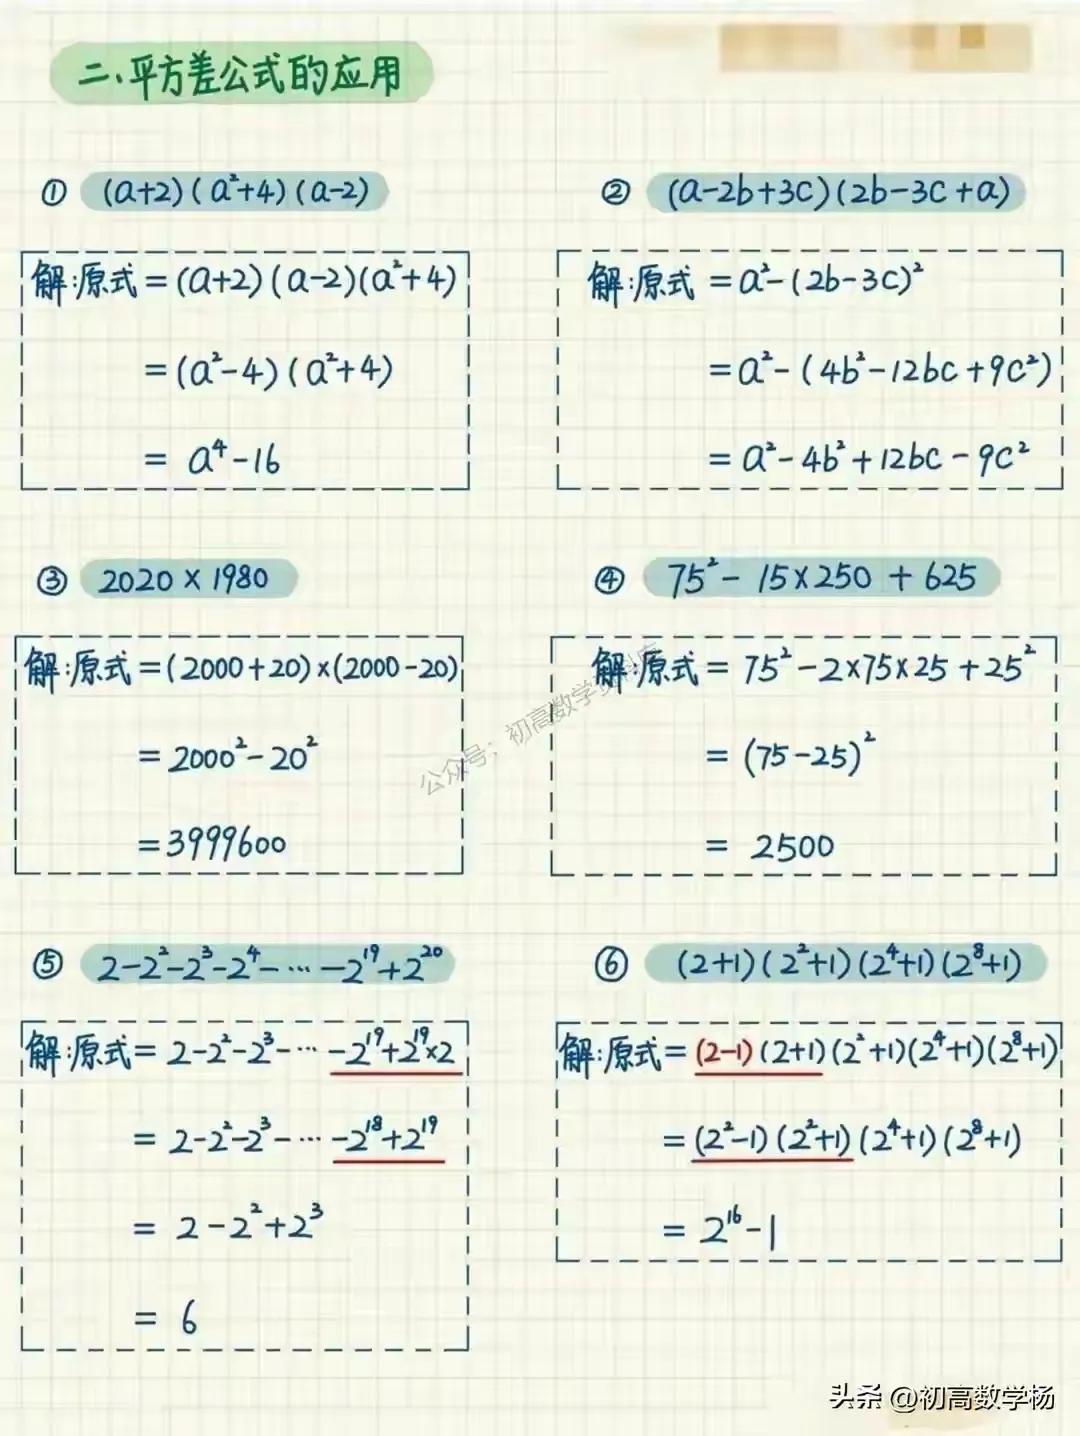 二、平方差公式的应用
① (a+2)(a²+4)(a-2)
解:原式=(a+2)(a-2)(a²+4)
=(a²-4)(a²+4)
= a⁴-16
② (a-2b+3c)(2b-3c+a)
解:原式 =a²-(2b-3c)²
=a²-(4b²-12bc+9c²)
=a²-4b²+12bc-9c²
③ 2020×1980
解:原式=(2000+20)×(2000-20)
=2000²-20²
=3999600
④ 75²-15×250+625
解:原式= 75²-2×75×25+25²
= (75-25)²
= 2500
⑤ 2-2²-2³-2⁴-…-2¹⁹+2²⁰
解:原式= 2-2²-2³-…-2¹⁹+2¹⁹×2
= 2-2²-2³-…-2¹⁸+2¹⁹
= 2-2²+2³
= 6
⑥ (2+1)(2²+1)(2⁴+1)(2⁸+1)
解:原式=(2-1)(2+1)(2²+1)(2⁴+1)(2⁸+1)
=(2²-1)(2²+1)(2⁴+1)(2⁸+1)
= 2¹⁶-1
公众号:初高数学资料库
头条 @初高数学杨